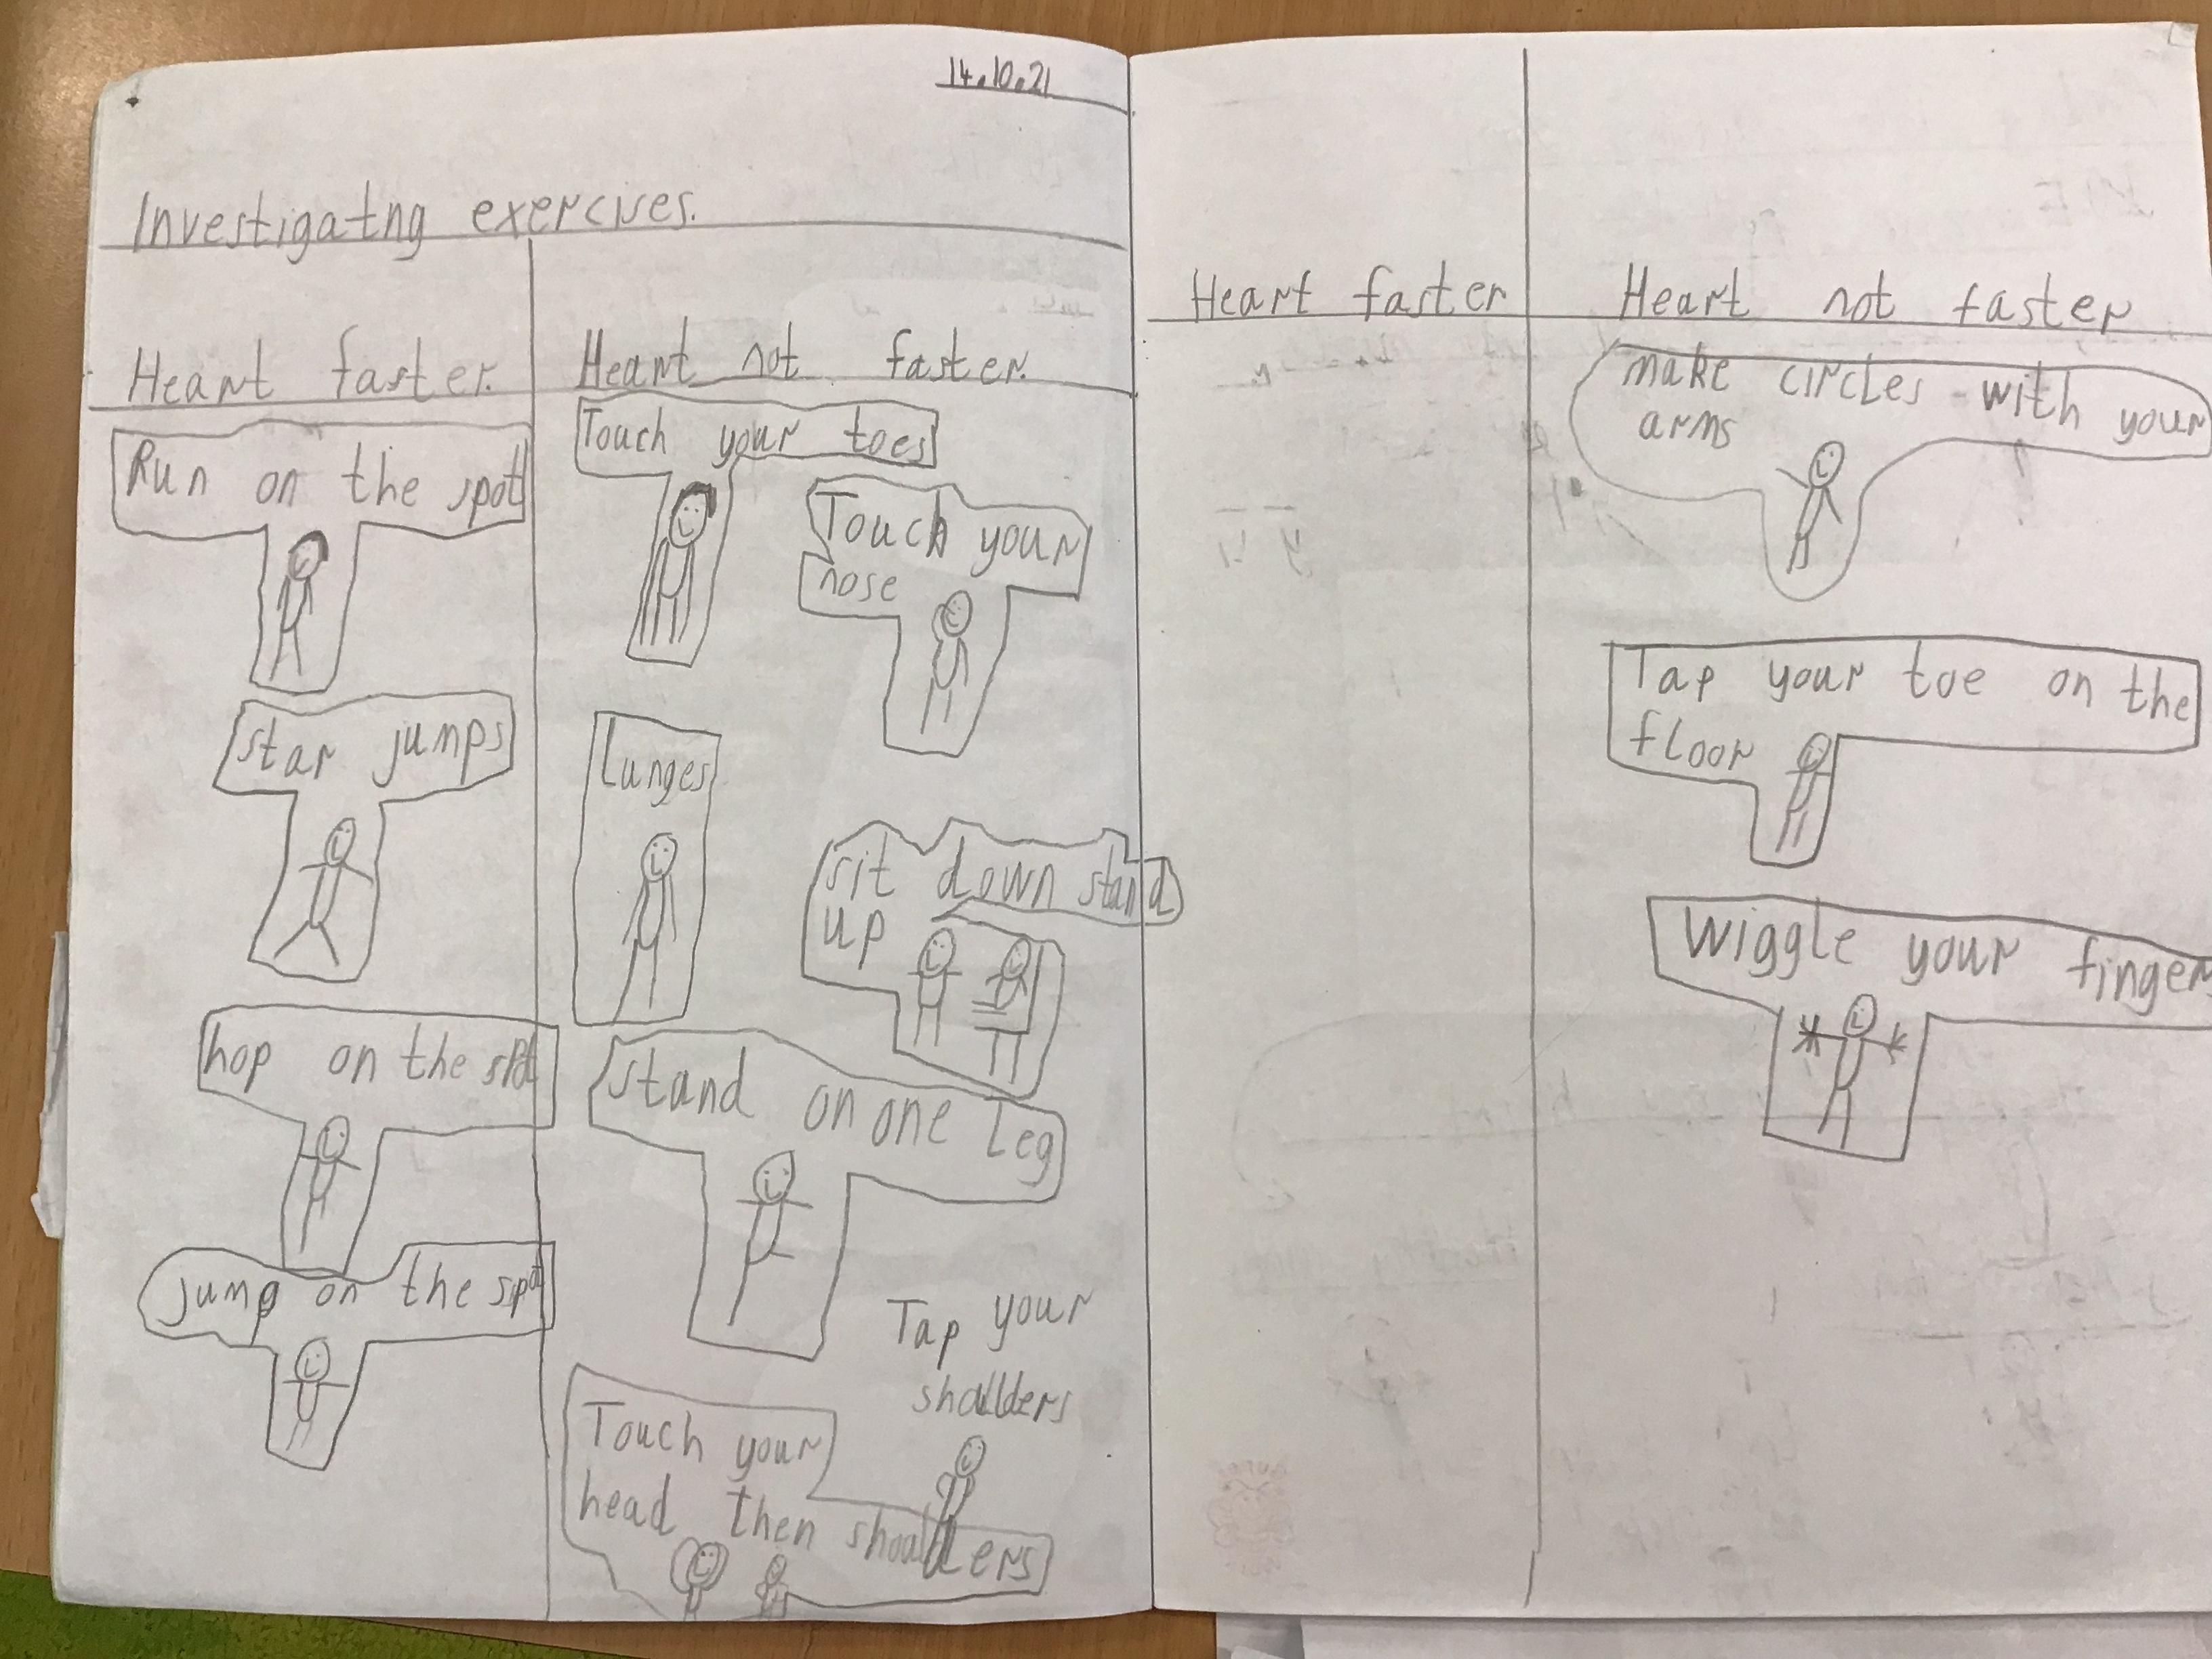 14.10.21
Investigatng exercises.
Heart faster.
Run on the spot
star jumps
hop on the spot
jump on the spot
Heart not faster.
Touch your toes
Touch your
nose
Lunges
sit down stand
up
stand on one Leg
Tap your
shoulders
Touch your
head then shoulders
Heart faster
Heart not faster
make circles with your
arms
Tap your toe on the
floor
wiggle your fingers